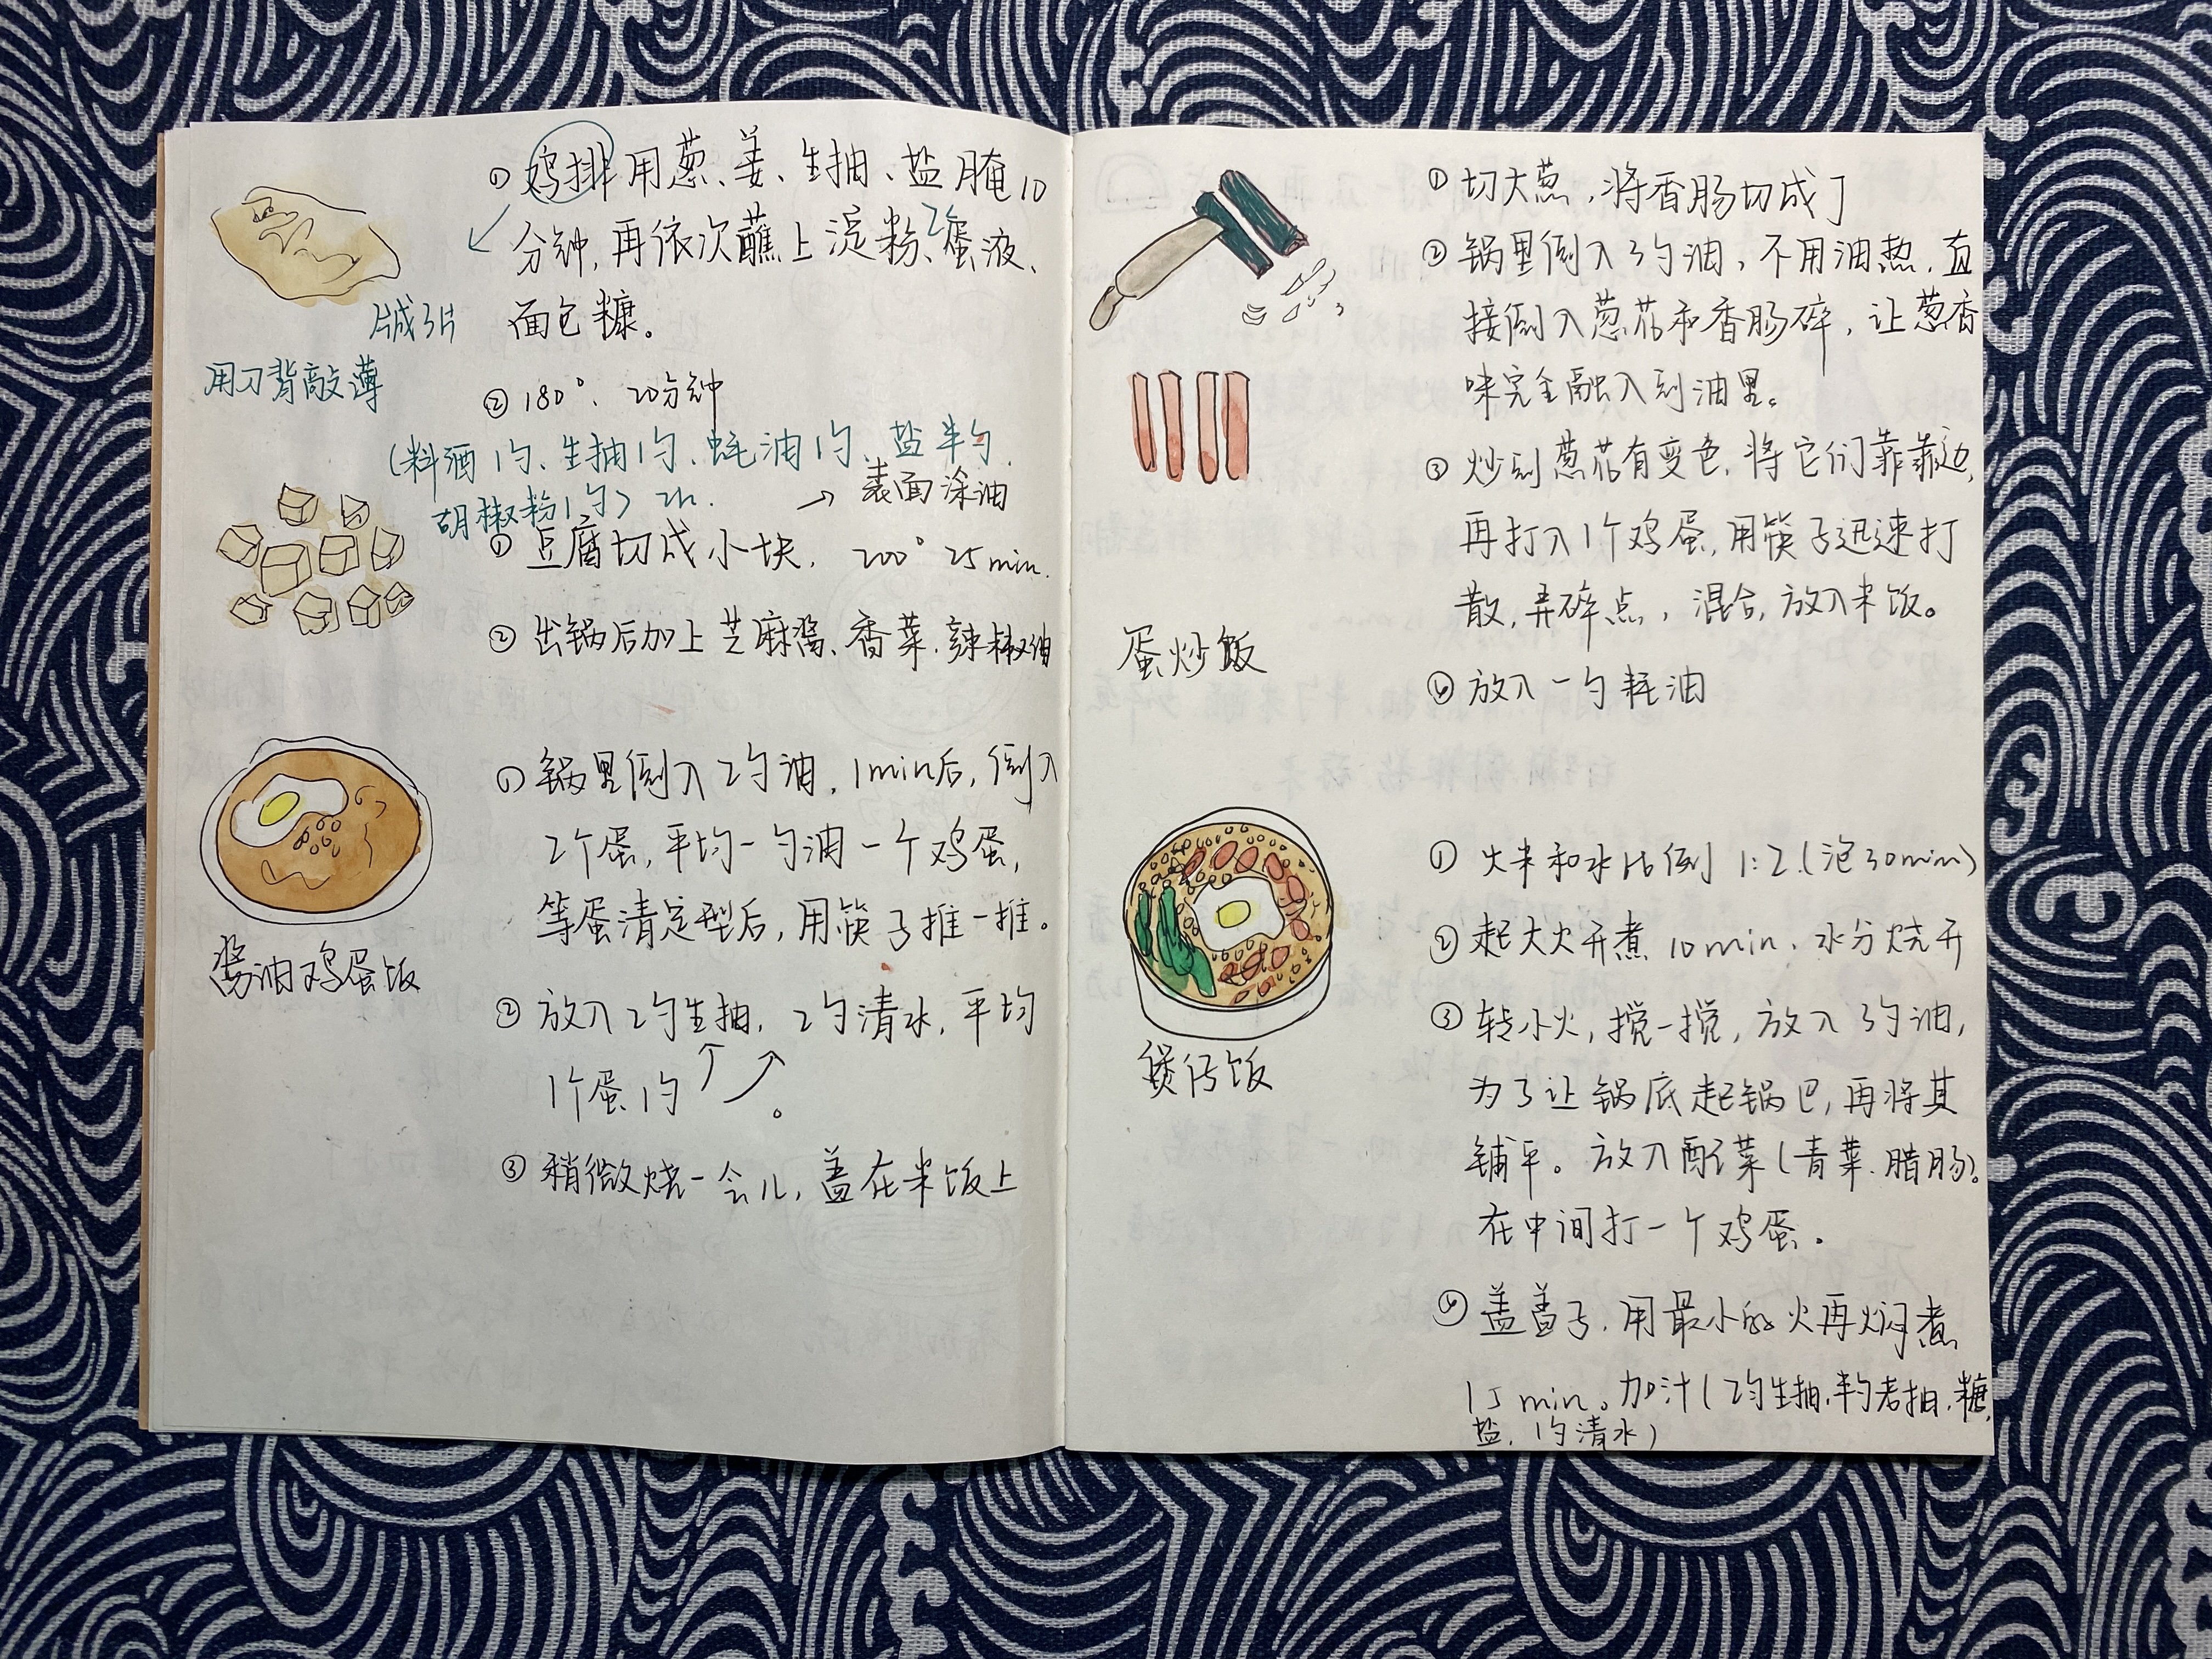 ① 鸡排用葱、姜、生抽、盐腌10
分钟,再依次蘸上淀粉、蛋液、
2个
面包糠。
片成3片
用刀背敲薄
② 180°、20分钟
(料酒1勺、生抽1勺、蚝油1勺、盐半勺、
胡椒粉1勺) 2h.
→ 表面涂油
① 豆腐切成小块, 200° 25min.
② 出锅后加上芝麻酱、香菜、辣椒油
① 锅里倒入2勺油,1min后,倒入
2个蛋,平均一勺油一个鸡蛋,
等蛋清定型后,用筷子推一推。
酱油鸡蛋饭
② 放入2勺生抽,2勺清水,平均
1个蛋1勺。
③ 稍微烧一会儿,盖在米饭上
① 切大葱,将香肠切成丁
② 锅里倒入3勺油,不用油热,直
接倒入葱花和香肠碎,让葱香
味完全融入到油里。
③ 炒到葱花有变色,将它们靠靠边,
再打入1个鸡蛋,用筷子迅速打
散,弄碎点,混合,放入米饭。
蛋炒饭
④ 放入一勺耗油
① 大米和水比例 1:2.(泡30min)
② 起大火开煮 10min,水分烧开
③ 转小火,搅一搅,放入3勺油,
煲仔饭
为了让锅底起锅巴,再将其
铺平。放入配菜(青菜、腊肠)。
在中间打一个鸡蛋。
④ 盖盖子,用最小的火再焖煮
15min。加汁(2勺生抽,半勺老抽,糖,
盐,1勺清水)